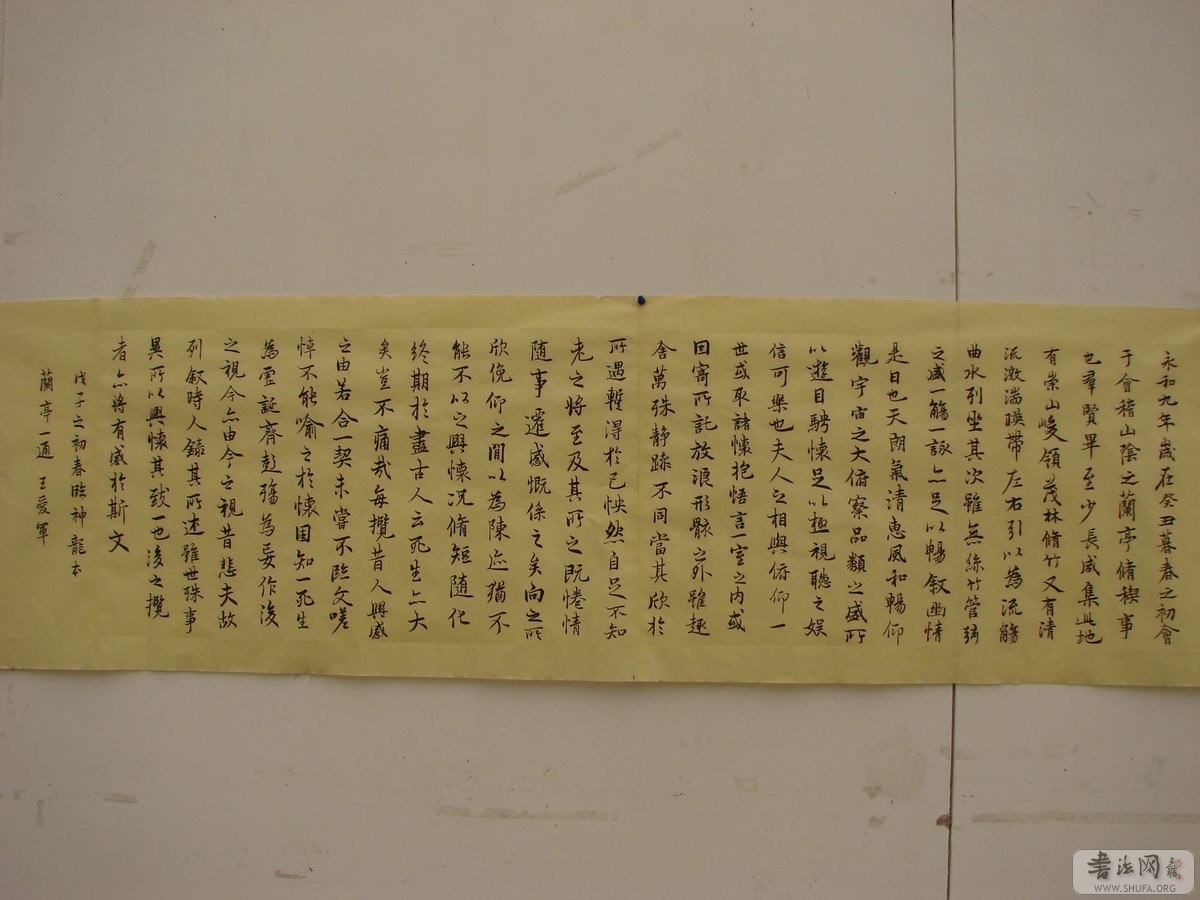 永和九年歲在癸丑暮春之初會
于會稽山陰之蘭亭脩稧事
也羣賢畢至少長咸集此地
有崇山峻領茂林脩竹又有清
流激湍暎帶左右引以為流觴
曲水列坐其次雖無絲竹管弦
之盛一觴一詠亦足以暢敘幽情
是日也天朗氣清惠風和暢仰
觀宇宙之大俯察品類之盛所
以遊目騁懷足以極視聽之娛
信可樂也夫人之相與俯仰一
世或取諸懷抱悟言一室之內或
因寄所託放浪形骸之外雖趣
舍萬殊靜躁不同當其欣於
所遇蹔得於己怏然自足不知
老之將至及其所之既惓情
隨事遷感慨係之矣向之所
欣俛仰之閒以為陳迹猶不
能不以之興懷況脩短隨化
終期於盡古人云死生亦大
矣豈不痛哉每攬昔人興感
之由若合一契未嘗不臨文嗟
悼不能喻之於懷固知一死生
為虛誕齊彭殤為妄作後
之視今亦由今之視昔悲夫故
列敘時人錄其所述雖世殊事
異所以興懷其致一也後之攬
者亦將有感於斯文
戊子之初春臨神龍本
蘭亭一通 王愛軍
書法网
WWW.SHUFA.ORG